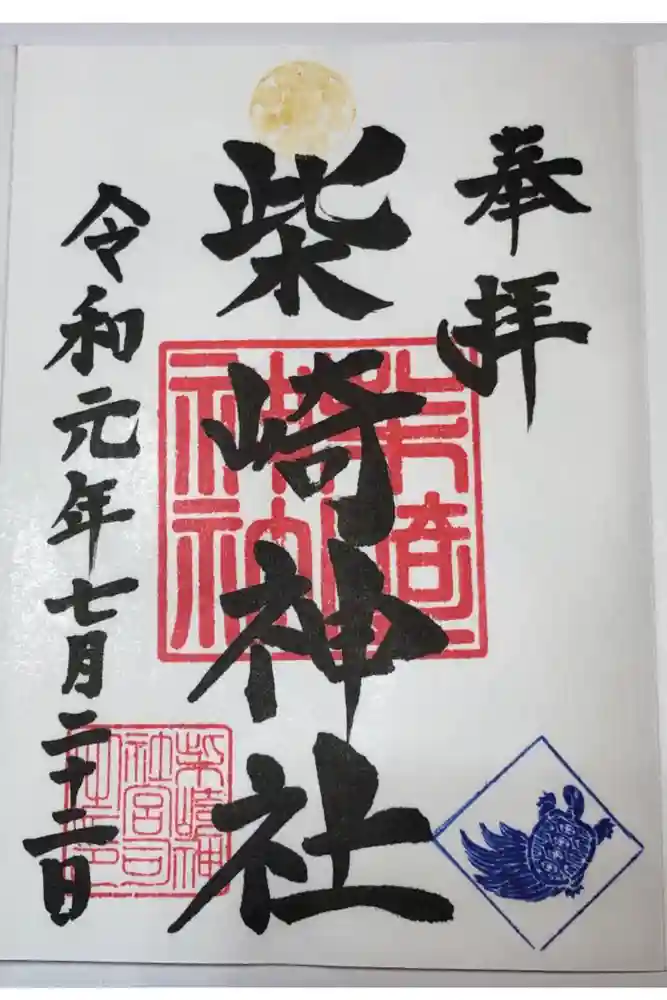 奉拝
柴崎神社
令和元年七月二十二日
柴崎神社
柴崎神社宮司之印